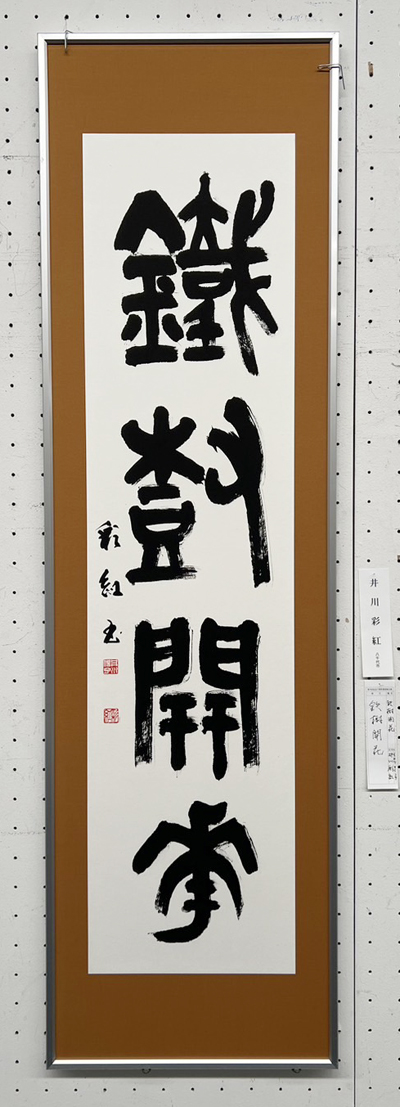 鐵尌開華
彩紅書
井川彩紅
鉄樹開花